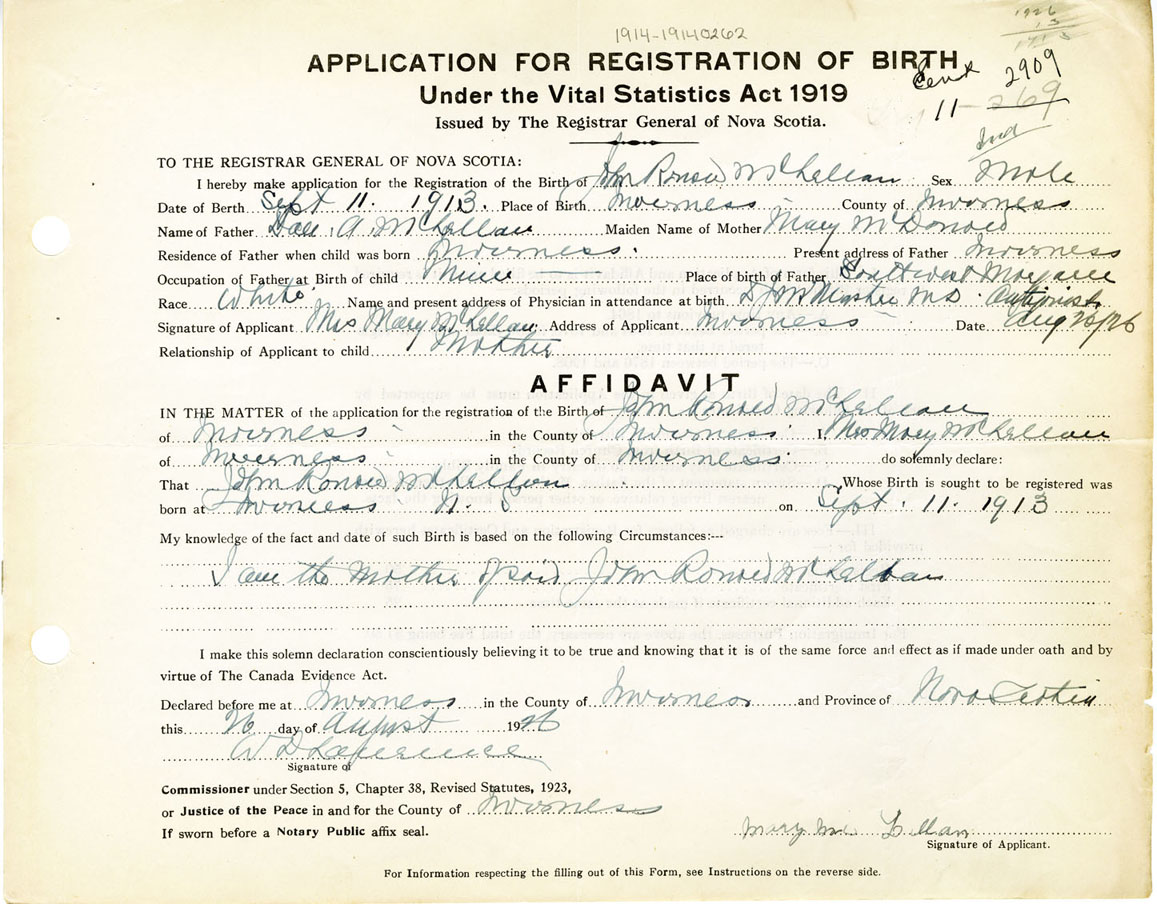 1914-19140262
1926
13
APPLICATION FOR REGISTRATION OF BIRTH
Cert 2909
Under the Vital Statistics Act 1919
11-269
Issued by The Registrar General of Nova Scotia.
Ind
TO THE REGISTRAR GENERAL OF NOVA SCOTIA:
I hereby make application for the Registration of the Birth of John Ronald McLellan Sex Male
Date of Berth Sept 11. 1913. Place of Birth Inverness County of Inverness
Name of Father Dan. A. McLellan Maiden Name of Mother Mary McDonald
Residence of Father when child was born Inverness. Present address of Father Inverness
Occupation of Father at Birth of child Miner Place of birth of Father Southwest Margaree
Race White Name and present address of Physician in attendance at birth McMaster MD. Antigonish
Signature of Applicant Mrs Mary McLellan Address of Applicant Inverness Date Aug 26/26
Relationship of Applicant to child Mother
AFFIDAVIT
IN THE MATTER of the application for the registration of the Birth of John Ronald McLellan
of Inverness in the County of Inverness I, Mrs Mary McLellan
of Inverness in the County of Inverness do solemnly declare:
That John Ronald McLellan Whose Birth is sought to be registered was
born at Inverness N. S on Sept. 11. 1913
My knowledge of the fact and date of such Birth is based on the following Circumstances:---
I am the Mother of said John Ronald McLellan
I make this solemn declaration conscientiously believing it to be true and knowing that it is of the same force and effect as if made under oath and by
virtue of The Canada Evidence Act.
Declared before me at Inverness in the County of Inverness and Province of Nova Scotia
this 26 day of August 1926
W D Lawrence
Signature of
Commissioner under Section 5, Chapter 38, Revised Statutes, 1923,
or Justice of the Peace in and for the County of Inverness
If sworn before a Notary Public affix seal.
Mary Mc Lellan
Signature of Applicant.
For Information respecting the filling out of this Form, see Instructions on the reverse side.